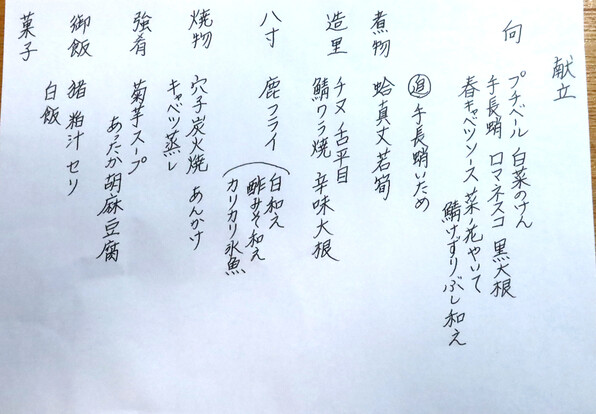 献立
向 プチベール 白菜のけん
手長蛸 ロマネスコ 黒大根
春キャベツソース 菜ノ花やいて
鯖けずりぶし和え
追 手長蛸いため
煮物 蛤真丈若筍
造里 チヌ 舌平目
鯖ワラ焼 辛味大根
八寸 鹿フライ
白和え
酢みそ和え
カリカリ氷魚
焼物 穴子炭火焼 あんかけ
キャベツ蒸し
強肴 菊芋スープ
あったか胡麻豆腐
御飯 猪 粕汁 セリ
白飯
菓子